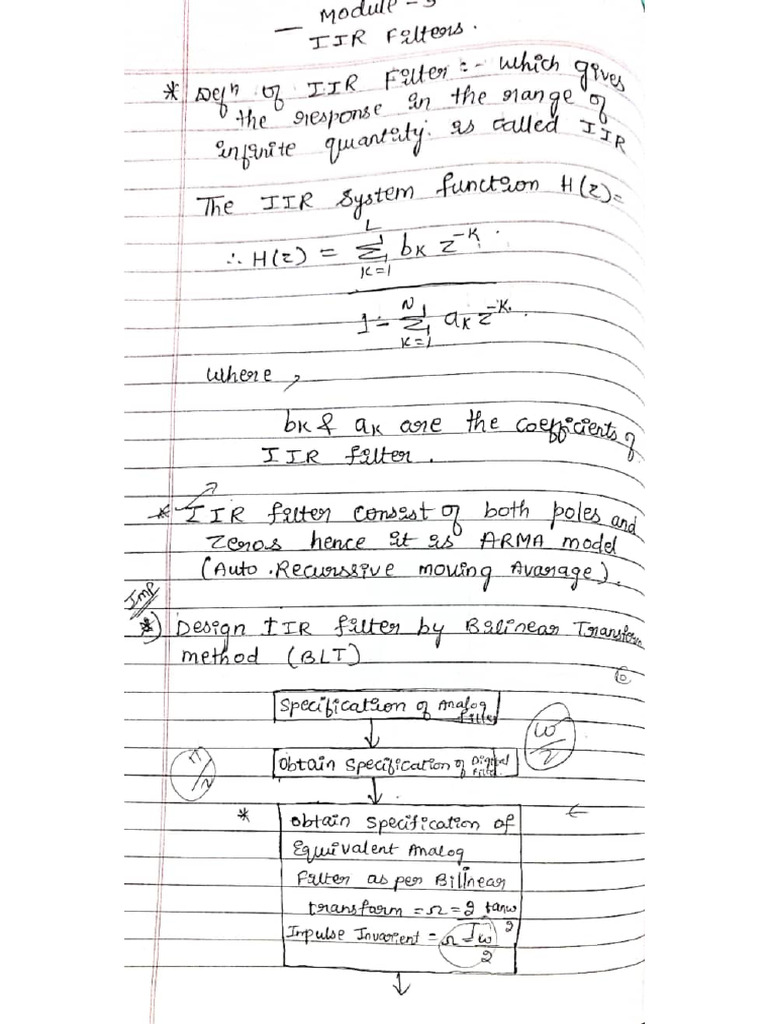 Module - 3
— IIR Filters.
* Defⁿ of IIR Filter :- which gives
the response in the range of
infinite quantity. is called IIR
The IIR system function H(z)=
∴ H(z) = L Σ K=1 bK z^-K.
1 - N Σ K=1 aK z^-K.
where,
bK & aK are the coefficients of
IIR filter.
* IIR filter consist of both poles and
zeros hence it is ARMA model
(Auto.Recurssive moving Avarage).
Imp
*) Design IIR filter by Bilinear Transform
method (BLT)
Specification of Analog Filter
ω/2
Obtain specification of Digital Filter.
* Obtain specification of
Equivalent Analog
Filter as per Bilinear
transform = Ω = 2 tan ω/2
Impulse Invarient = Ω